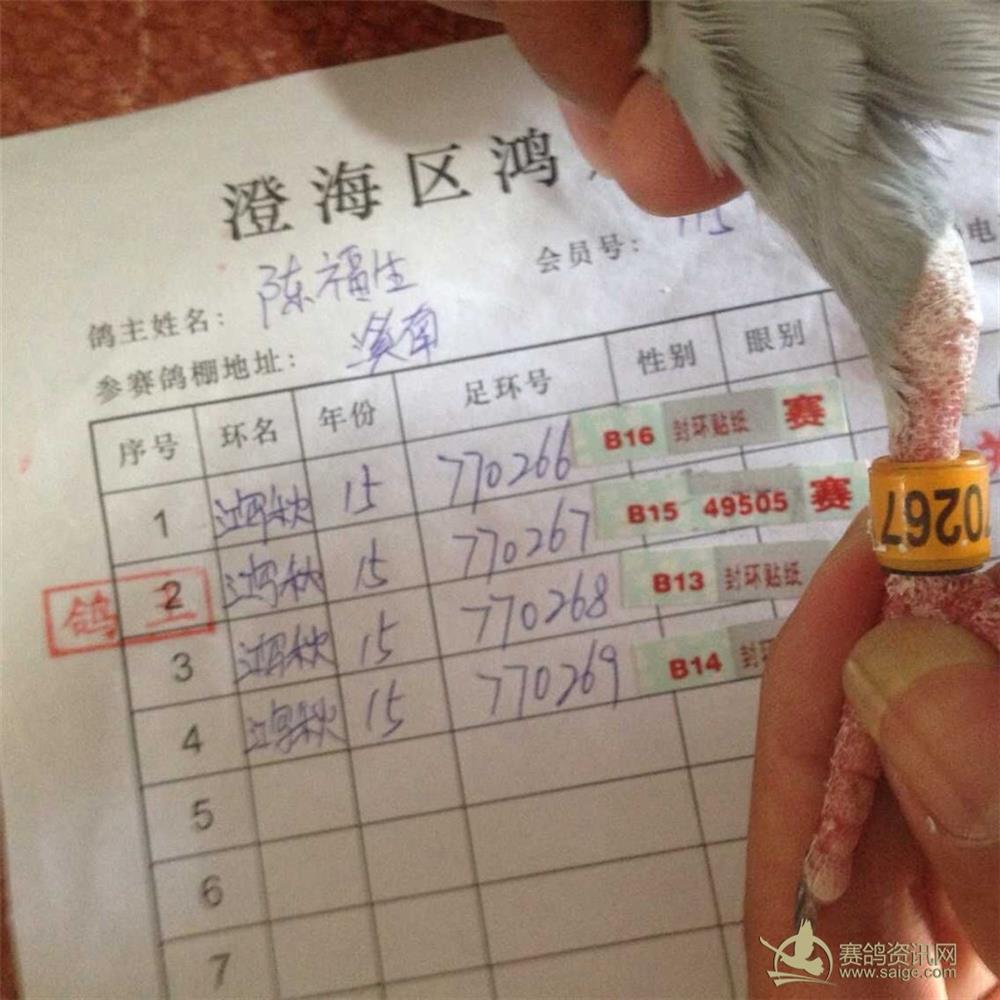 澄海区鸿
鸽主姓名: 陈福生 会员号: 115 电
参赛鸽棚地址: 溪南
序号 环名 年份 足环号 性别 眼别
1 鸿秋 15 770266 B16 封环贴纸 赛
2 鸿秋 15 770267 B15 49505 赛
3 鸿秋 15 770268 B13 封环贴纸
4 鸿秋 15 770269 B14 封环
5
6
7
鸽主
70267
赛鸽资讯网
www.saige.com